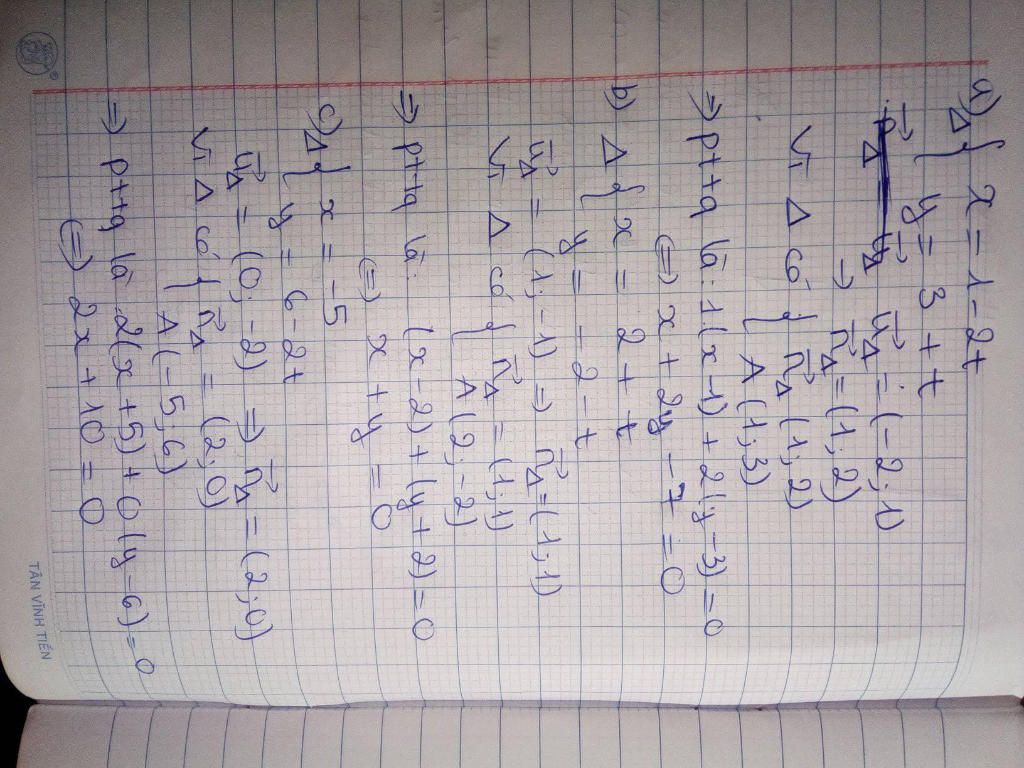 a)
Δ { x = 1 - 2t
y = 3 + t
u⃗Δ = (-2; 1)
→ n⃗Δ = (1; 2)
Vì Δ có { n⃗Δ (1; 2)
A (1; 3)
=> pttq là: 1(x - 1) + 2(y - 3) = 0
<=> x + 2y - 7 = 0
b) Δ { x = 2 + t
y = -2 - t
u⃗Δ = (1; -1) => n⃗Δ = (1; 1)
Vì Δ có { n⃗Δ = (1; 1)
A (2; -2)
=> pttq là: (x - 2) + (y + 2) = 0
<=> x + y = 0
c) Δ { x = -5
y = 6 - 2t
u⃗Δ = (0; -2) => n⃗Δ = (2; 0)
Vì Δ có { n⃗Δ = (2; 0)
A (-5; 6)
=> pttq là 2(x + 5) + 0(y - 6) = 0
<=> 2x + 10 = 0
TÂN VĨNH TIẾN